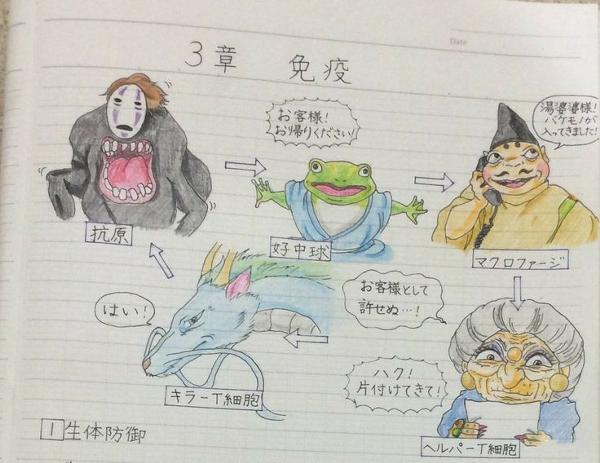 Date
3章 免疫
お客様!
お帰りください!
湯婆婆様!
バケモノが
入ってきました!
抗原
好中球
マクロファージ
はい!
お客様として
許せぬ…!
ハク!
片付けてきて!
キラーT細胞
ヘルパーT細胞
1 生体防御